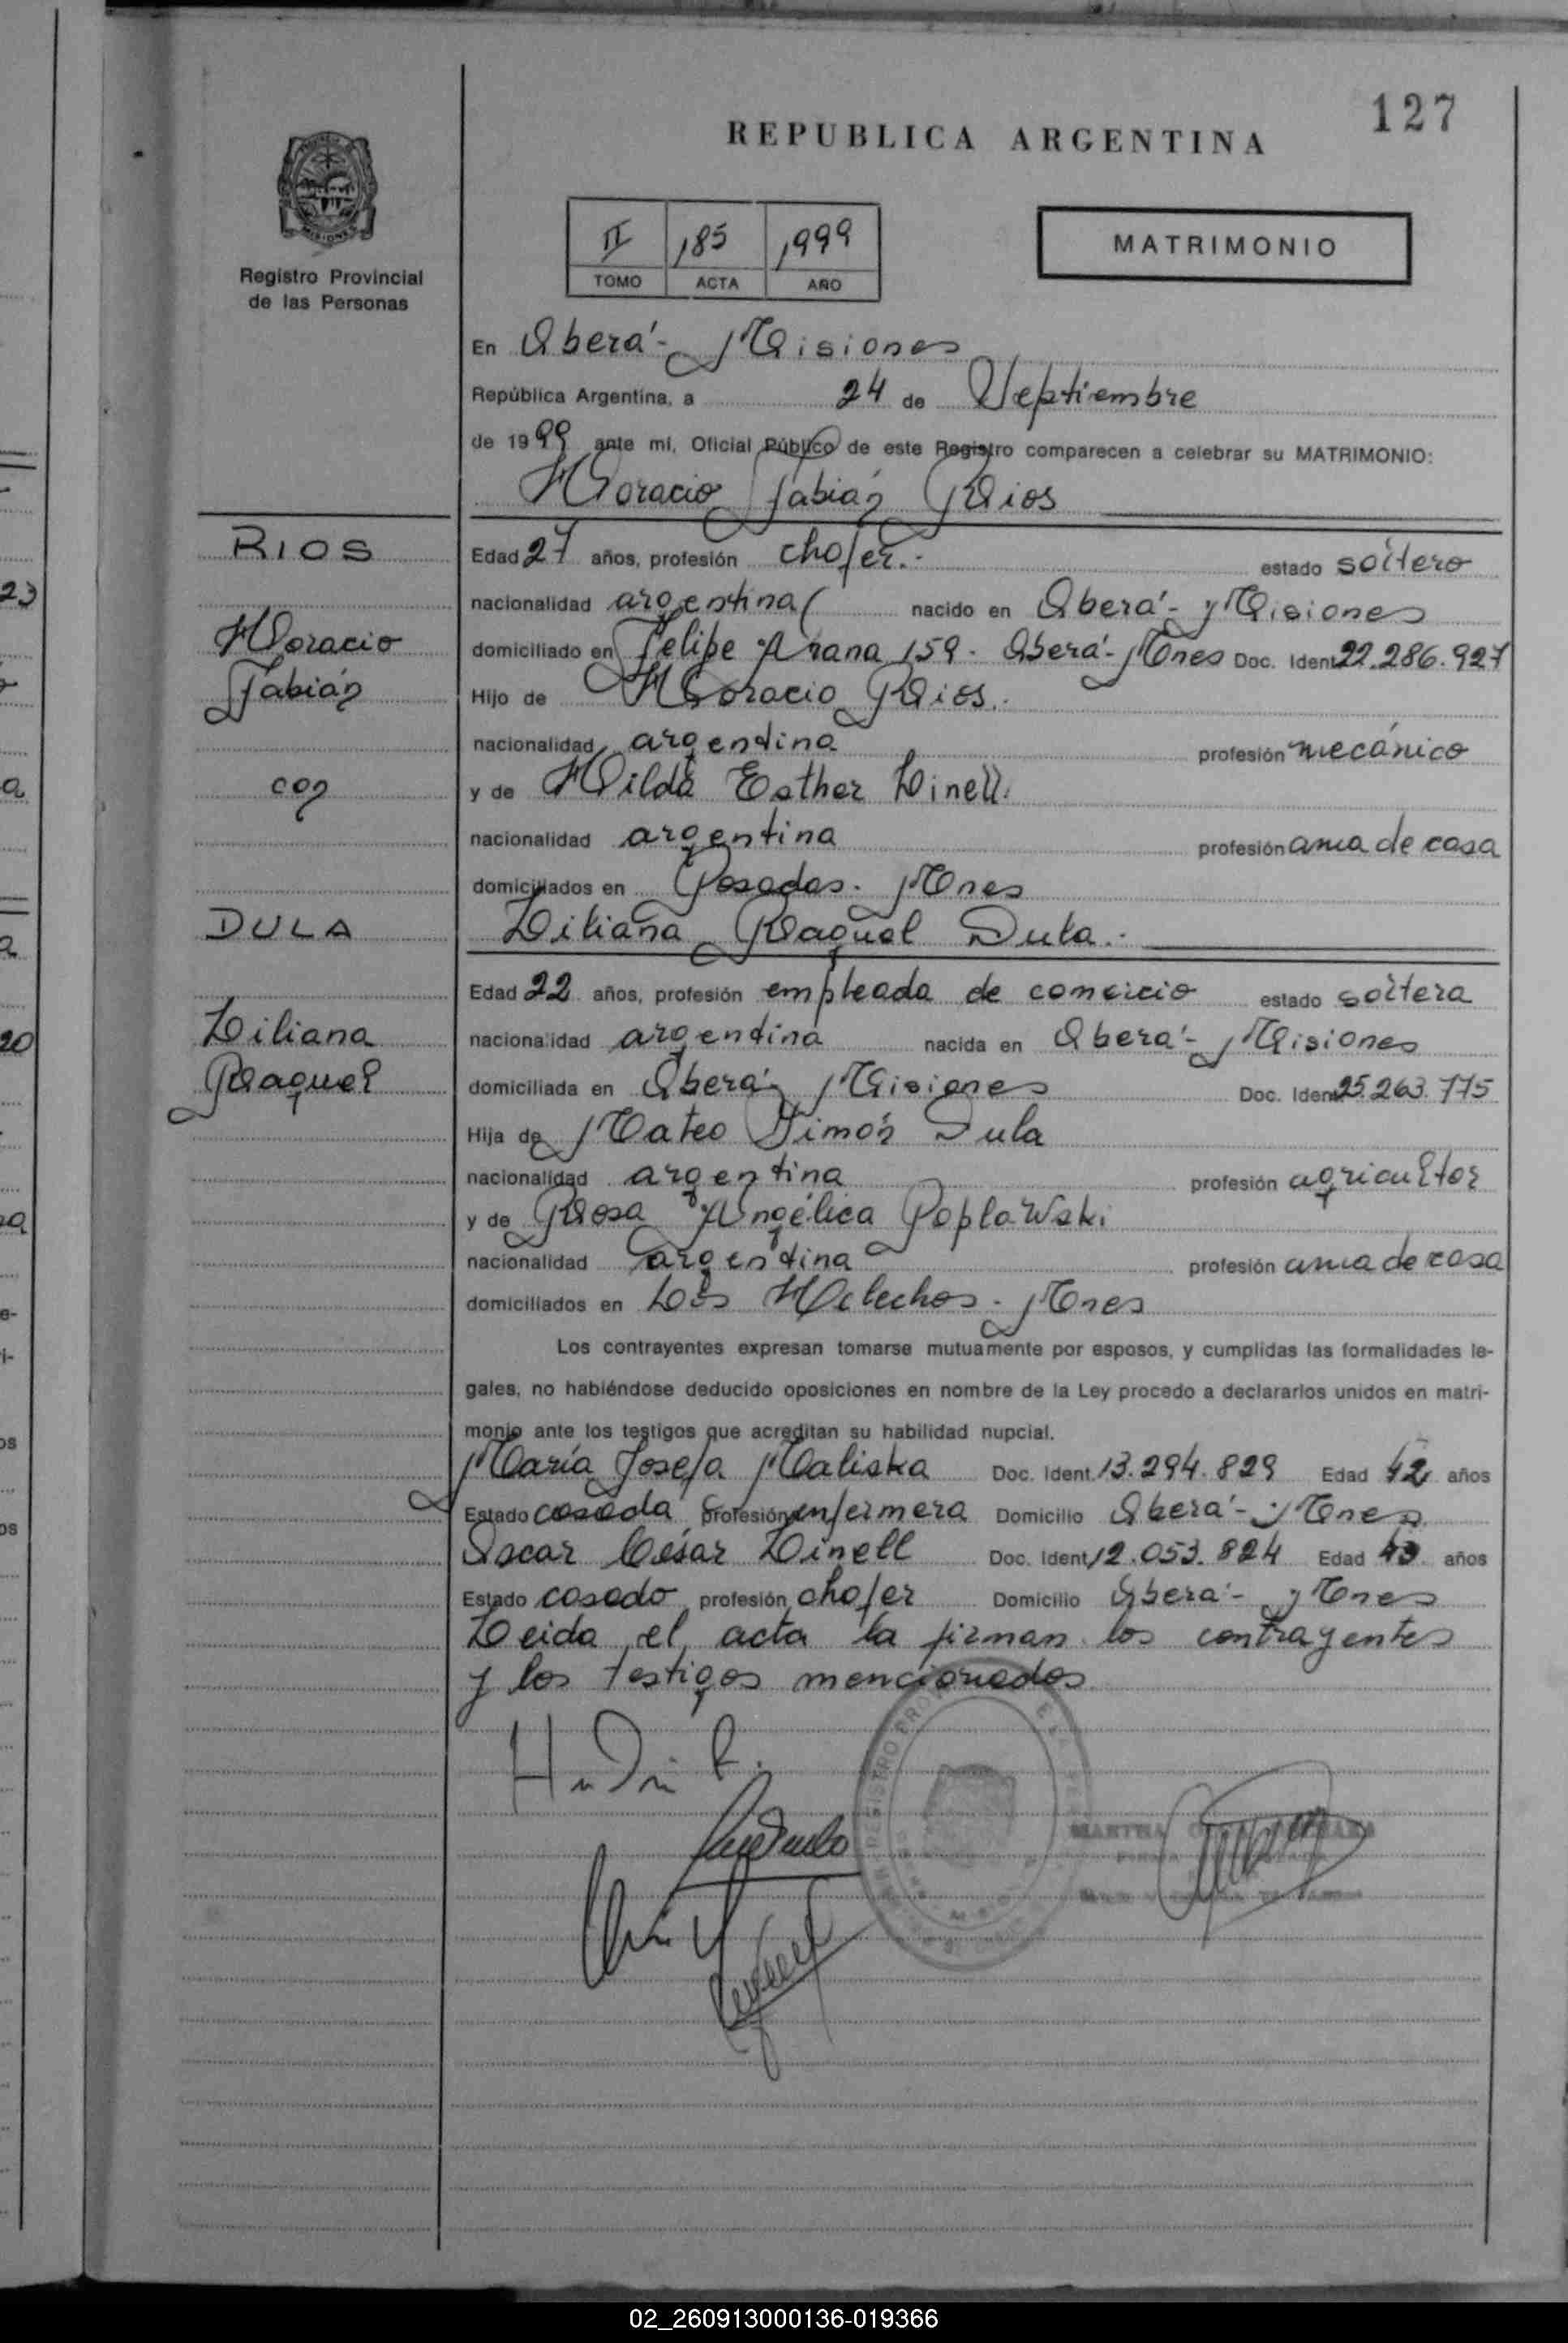 127
REPUBLICA ARGENTINA
MISIONES
Registro Provincial
de las Personas
II 185 1999
TOMO ACTA AÑO
MATRIMONIO
En Oberá - Misiones
República Argentina, a 24 de Septiembre
de 1999 ante mi, Oficial Público de este Registro comparecen a celebrar su MATRIMONIO:
Horacio Fabián Rios
RIOS
Horacio
Fabián
con
DULA
Liliana
Raquel
Edad 27 años, profesión chofer.- estado soltero
nacionalidad argentina nacido en Oberá - Misiones
domiciliado en Felipe Arana 159 - Oberá - Mnes Doc. Ident. 22.286.927
Hijo de Horacio Rios.-
nacionalidad argentina profesión mecánico
y de Hilda Esther Linell.
nacionalidad argentina profesión ama de casa
domiciliados en Posadas - Mnes
Liliana Raquel Dula.-
Edad 22 años, profesión empleada de comercio estado soltera
nacionalidad argentina nacida en Oberá - Misiones
domiciliada en Oberá - Misiones Doc. Ident. 25.263.775
Hija de Mateo Simón Dula
nacionalidad argentina profesión agricultor
y de Rosa Angélica Poplawski
nacionalidad argentina profesión ama de casa
domiciliados en Los Helechos - Mnes
Los contrayentes expresan tomarse mutuamente por esposos, y cumplidas las formalidades le-
gales, no habiéndose deducido oposiciones en nombre de la Ley procedo a declararlos unidos en matri-
monio ante los testigos que acreditan su habilidad nupcial.
María Josefa Maliska Doc. Ident. 13.294.829 Edad 42 años
Estado casada profesión enfermera Domicilio Oberá - Mnes
Oscar César Linell Doc. Ident. 12.053.824 Edad 43 años
Estado casado profesión chofer Domicilio Oberá - Mnes
Leida el acta la firman los contrayentes
y los testigos mencionados
MARTHA
02_260913000136-019366